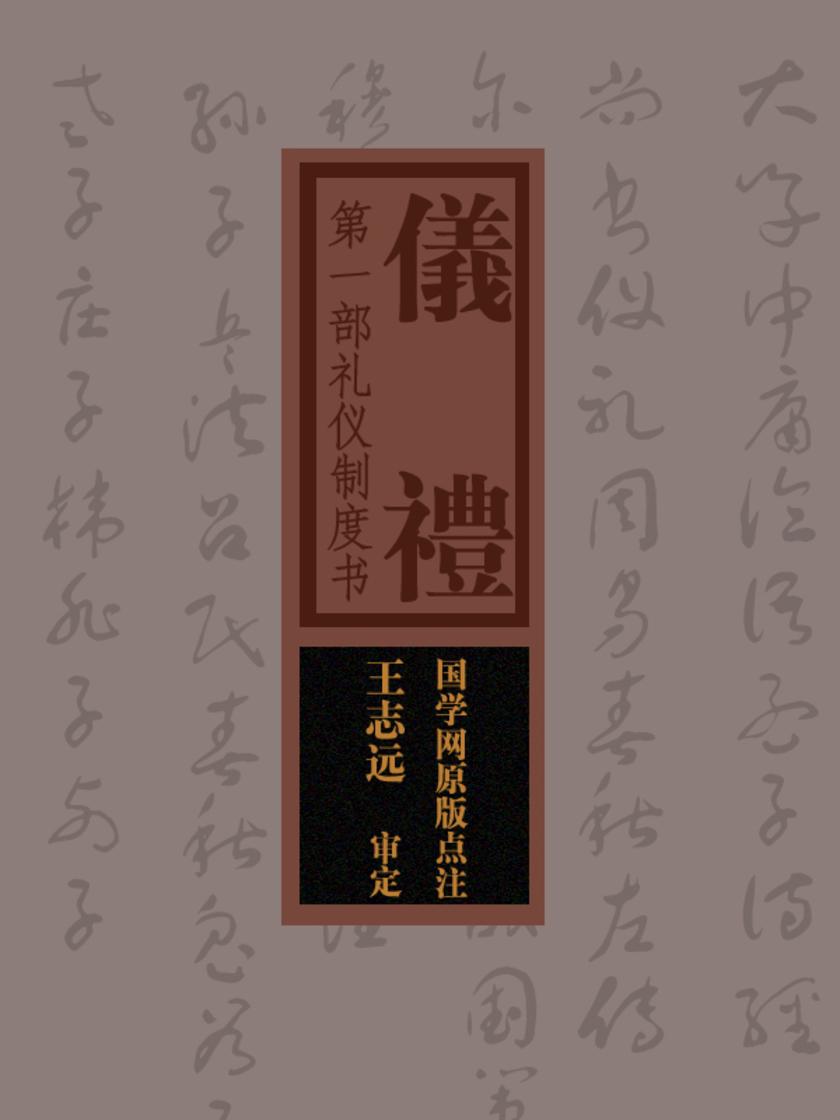 儀禮
第一部礼仪制度书
国学网原版点注
王志远 审定
大学中庸论语孟子诗经
尚书仪礼周易春秋左传
尔
国策
穆
孙子兵法吕氏春秋鬼谷子
老子庄子韩非子列子